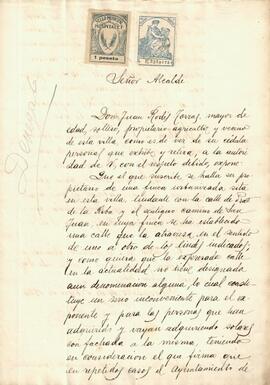 1 peseta
Señor Alcalde
Don Juan Rodés, mayor de
edad, soltero, propietario agricultor y vecino
de esta villa, como es de ver de su cédula
personal que exhibe y retira, a la autori-
dad de V. con el respeto debido, expone
Que el que suscribe se halla ser pro-
pietario de una finca urbanizada sita
en esta villa, lindante con la calle de
de la Riba y el antiguo camino de San
Juan, en cuya finca se ha establecido
una calle que la atraviesa, en el sentido
de uno a otro de los lindes indicados;
y como quiera que la expresada calle
en la actualidad no tiene designada
aun denominacion alguna, lo cual consti-
tuye un serio inconveniente para el ex-
ponente y para las personas que han
adquirido y vayan adquiriendo solares
con fachada a la misma, teniendo
en consideracion el que firma que
en repetidos casos el Ayuntamiento de